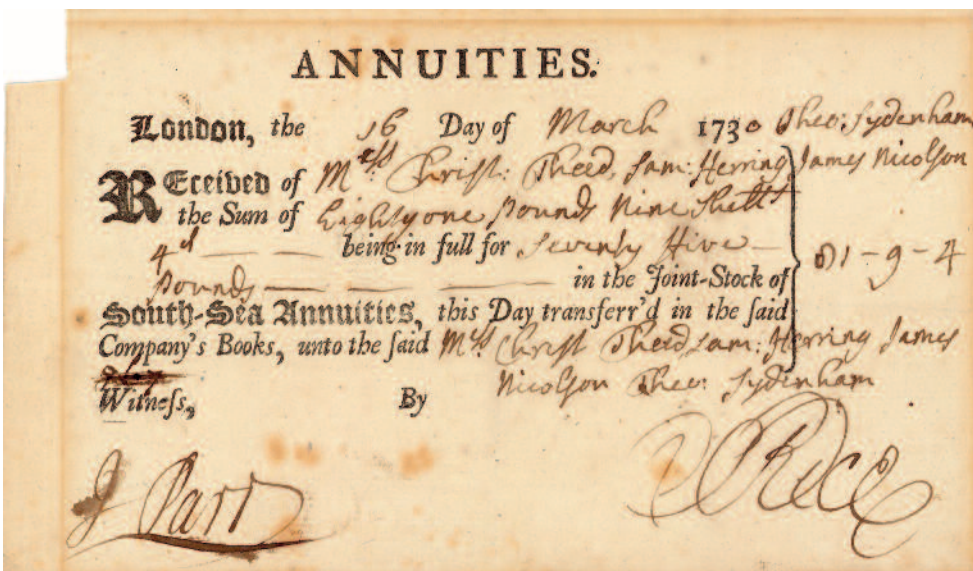 ANNUITIES.
London, the 16 Day of March 1730 Theo: Sydenham
REceived of Mess.rs Christ: Theed, Sam: Herring James Nicolson
the Sum of Eighty one Pounds Nine Shill.s
4.d being in full for Seventy Five 81-9-4
Pounds in the Joint-Stock of
South-Sea Annuities, this Day transferr'd in the said
Company's Books, unto the said Mess.rs Christ Theed Sam: Herring James
Nicolson Theo: Sydenham
Witneſs, By
J Parr